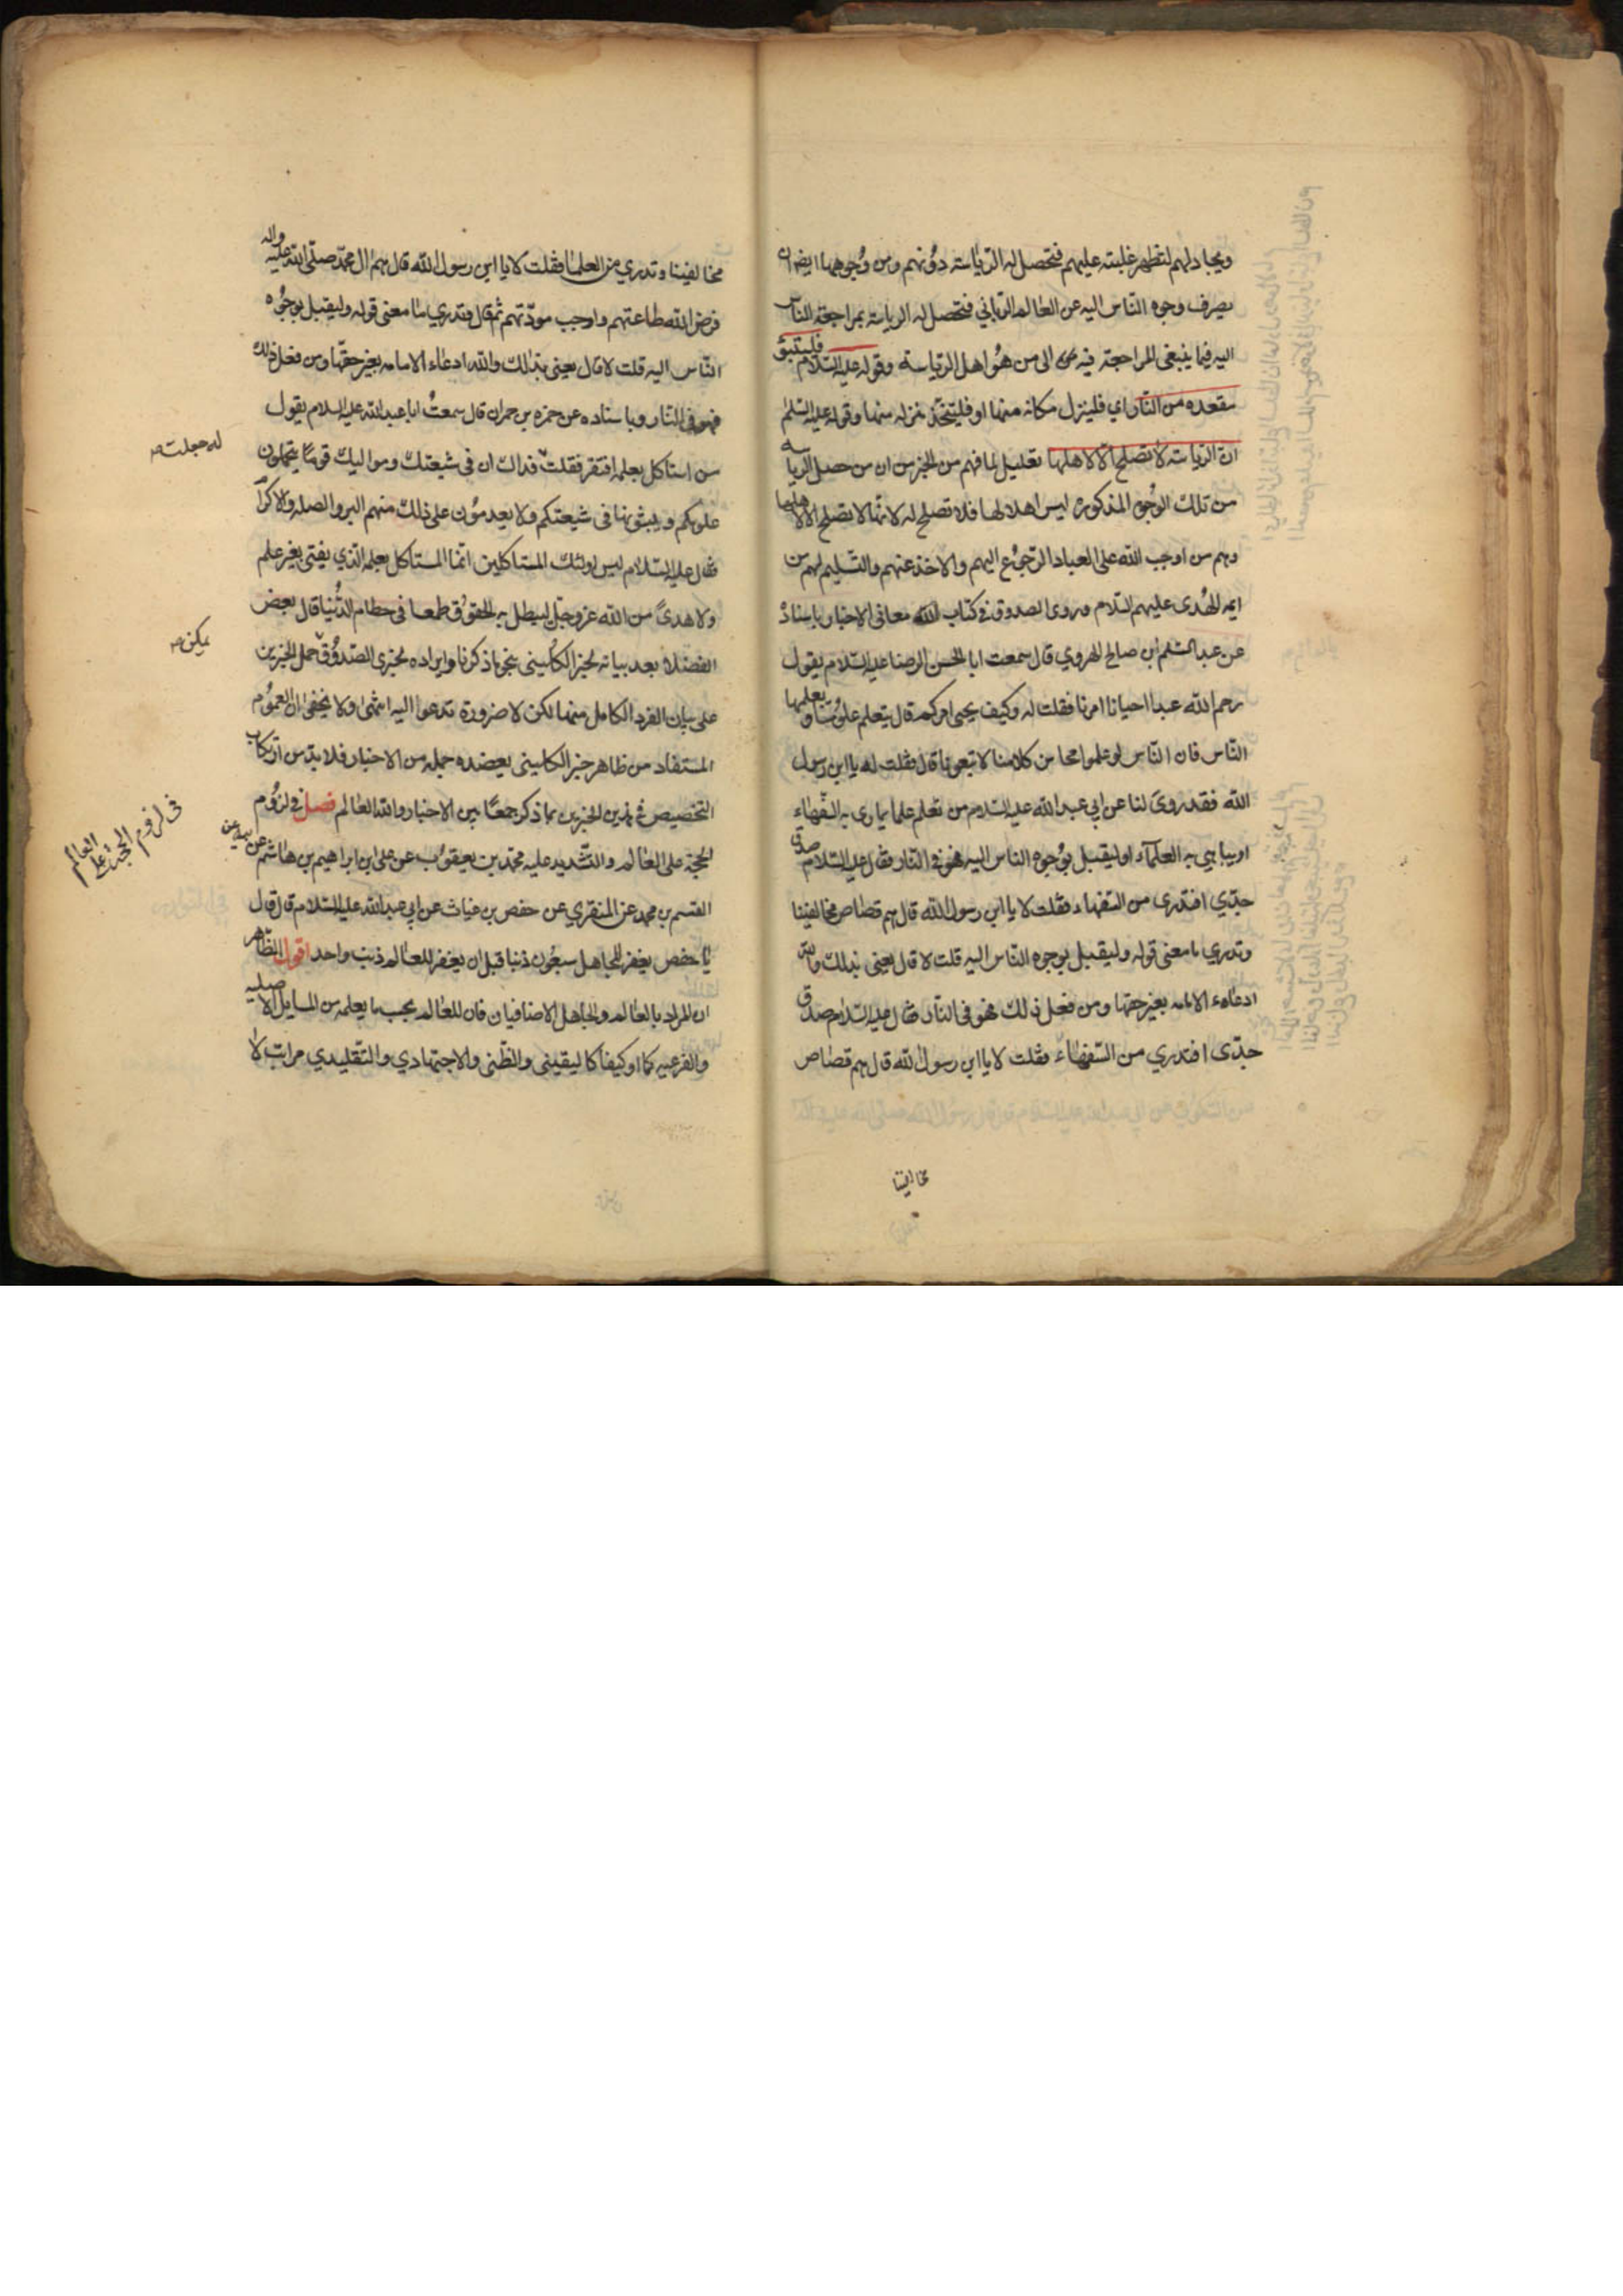 ويجادلهم لتظهر غلبته عليهم فتحصل له الرياسة دونهم ومن وجوهها ايضا ان
يصرف وجوه الناس اليه عن العالم الرباني فتحصل له الرياسة بمراجعة الناس
اليه فيما ينبغي المراجعة فيه الى من هو اهل الرياسة وقوله عليه السلام فليتبوء
مقعده من النار اي فلينزل مكانه منها او فليتخذ منزله منها وقوله عليه السلم
ان الرياسة لا تصلح الا لاهلها تعليل لما فهم من الخبر من ان من حصل الرياسه
من تلك الوجوه المذكورة ليس اهلا لها فلا تصلح له لانها لا تصلح الا لاهلها
وهم من اوجب الله على العباد الرجوع اليهم والاخذ عنهم والتسليم لهم من
ايمه الهدى عليهم السلام وروى الصدوق في كتاب معاني الاخبار باسناده
عن عبد السلم ابن صالح الهروي قال سمعت ابا الحسن الرضا عليه السلام يقول
رحم الله عبدا احيانا امرنا فقلت له وكيف يحيى امركم قال يتعلم علومنا ويعلمها
الناس فان الناس لو علموا محاسن كلامنا لاتبعونا قال فقلت له يا ابن رسول
الله فقد روى لنا عن ابي عبد الله عليه السلام من تعلم علما يماري به السفهاء
او يباهي به العلماء او ليقبل بوجوه الناس اليه فهو في النار فقال عليه السلام صدق
جدي افتدرى من السفهاء فقلت لا يا ابن رسول الله قال هم قصاص مخالفينا
وتدري ما معنى قوله وليقبل بوجوه الناس اليه قلت لا قال يعنى بذلك والله
ادعاء الامامه بغير حقها ومن فعل ذلك فهو في النار فقال عليه السلام صدق
جدى افتدري من السفهاء فقلت لا يا ابن رسول الله قال هم قصاص
مخالفينا
مخالفينا وتدري من العلما فقلت لا يا ابن رسول الله قال هم ال محمد صلى الله عليه واله
فرض الله طاعتهم واوجب مودتهم ثم قال وتدري ما معنى قوله وليقبل بوجوه
الناس اليه قلت لا قال يعنى بذلك والله ادعاء الامامه بغير حقها ومن فعل ذلك
فهو في النار وباسناده عن حمزه بن حمران قال سمعت ابا عبد الله عليه السلام يقول
من استاكل بعلمه افتقر فقلت فداك ان في شيعتك ومواليك قوما يتحملون
له جعلت صح
علومكم ويبثونها فى شيعتكم ولا يعدمون على ذلك منهم البر والصله والاكرام
فقال عليه السلام ليس اولئك المستاكلين انما المستاكل بعلمه الذي يفتى بغير علم
ولا هدى من الله عز وجل ليبطل به الحقوق طمعا فى حطام الدنيا قال بعض
الفضلا بعد بيانه لخبر الكلينى بنحو ما ذكرنا وايراده لخبرى الصدوق حمل الخبرين
يمكن صح
على بيان الفرد الكامل منها لكن لا ضرورة تدعوا اليه انتهى ولا يخفى ان العموم
المستفاد من ظاهر خبر الكلينى يعضده جمله من الاخبار فلا بد من ارتكاب
التخصيص في هذين الخبرين بما ذكر جمعا بين الاخبار والله العالم فصل في لزوم
فى لزوم الحجة على العالم
الحجة على العالم والتشديد عليه محمد بن يعقوب عن على ابن ابراهيم بن هاشم عن ابيه عن
القسم بن محمد عن المنقري عن حفص بن غياث عن ابي عبد الله عليه السلام قال قال
يا حفص يغفر للجاهل سبعون ذنبا قبل ان يغفر للعالم ذنب واحد اقول الظاهر
ان المراد بالعالم والجاهل الاضافيان فان للعالم بحسب ما يعلمه من المسايل الاصليه
والفرعيه كما او كيفا كاليقينى والظنى والاجتهادي والتقليدي مراتب لا